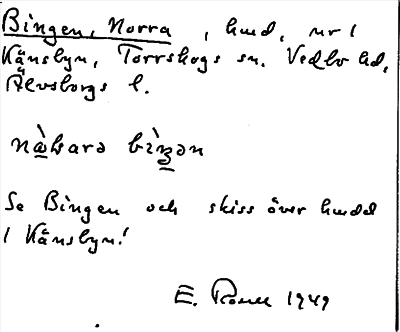 Bingen, Norra, hmd, nr 1
Känsbyn, Torrskogs sn. Vedbo hd,
Älvsborgs l.
bìŋən
Se Bingen och skiss över hmdd
1 Känsbyn!
E. 1949